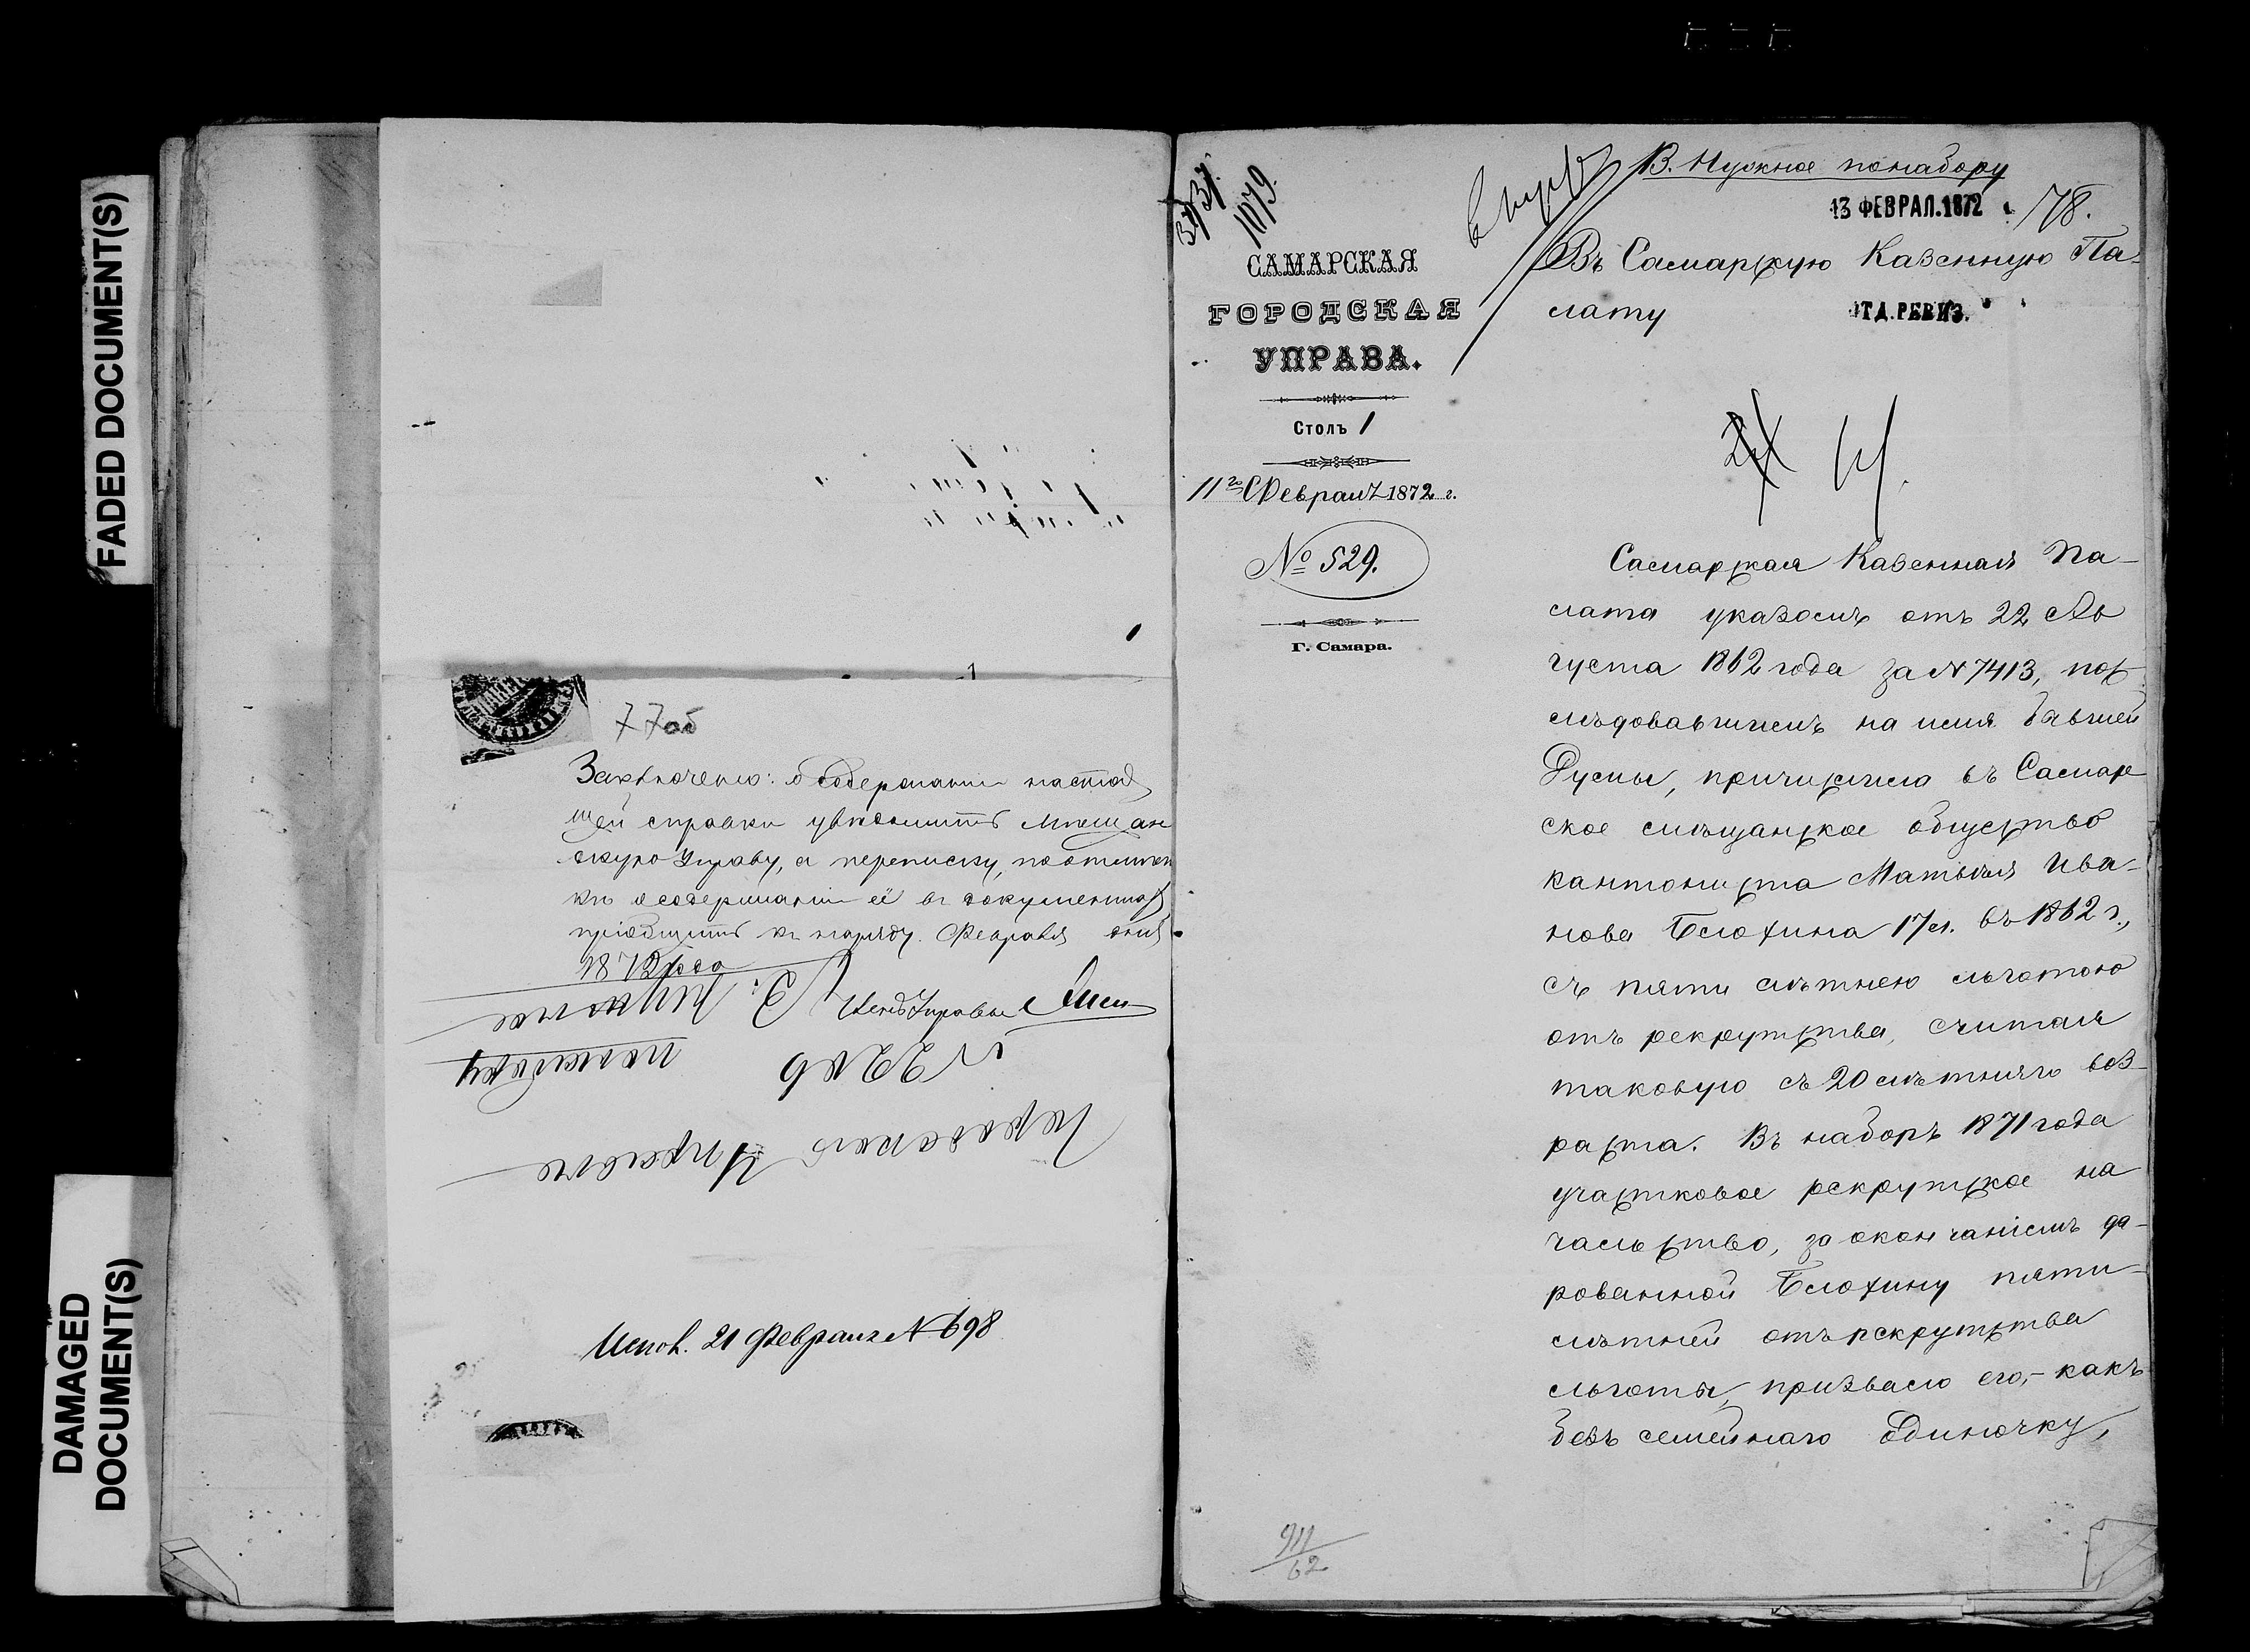 FADED DOCUMENT(S)
DAMAGED
DOCUMENT(S)
77об
Заключено: о содержании настоя
щей справки увѣдомить Мѣщан
скую Управу, а переписку, по отмѣт
кѣ о содержаніи ея въ документахъ
пріобщить къ наряду. Февраля дня
1872 года
Членъ Управы
Э. Нужное
по набору
Городской Управѣ
Испол. 21 Февраля № 698
1079
В. Нужное по набору
13 ФЕВРАЛ. 1872
78.
САМАРСКАЯ
ГОРОДСКАЯ
УПРАВА.
Столъ 1
11го Февраля 1872 г.
№ 529.
Г. Самара.
Въ Самарскую Казенную Па-
лату
ОТД. РЕВИЗ.
Самарская Казенная Па-
лата указомъ отъ 22 Ав
густа 1862 года за № 7413, пос
лѣдовавшимъ на имя бывшей
Думы, причислила въ Самар
ское мѣщанское общество
кантониста Матвѣя Ива-
нова Блохина 17 л. въ 1862 г.,
съ пяти лѣтнею льготою
отъ рекрутства, считая
таковую съ 20 лѣтняго воз-
раста. Въ наборъ 1871 года
участковое рекрутское на
чальство, за окончаніемъ да-
рованной Блохину пяти-
лѣтней отъ рекрутства
льготы, призвало его, - какъ
безъ семейнаго одиночку,
911
62